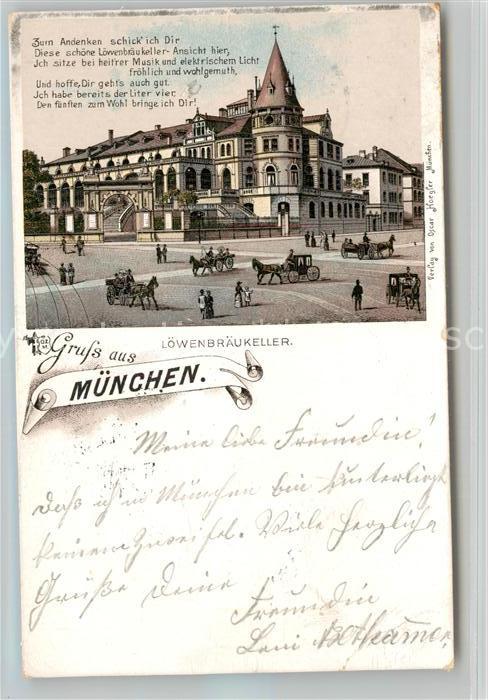 Zum Andenken schick' ich Dir
Diese schöne Löwenbräukeller-Ansicht hier,
Ich sitze bei heitrer Musik und elektrischem Licht
fröhlich und wohlgemuth,
Und hoffe, Dir geht's auch gut.
Ich habe bereits der Liter vier,
Den fünften zum Wohl bringe ich Dir!
Verlag von Oscar München.
LÖWENBRÄUKELLER.
Gruss aus
MÜNCHEN.
Meine liebe Freundin!
Daß ich in München bin unterliegt
keinem Zweifel. Viele herzliche
Grüße Deine
Freundin
Leni